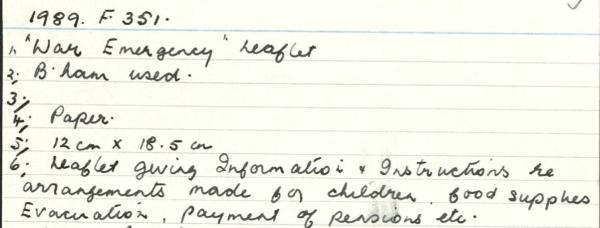 1989. F 351.
1, "War Emergency" Leaflet
2; B'ham used.
3;
4; Paper.
5; 12 cm x 18.5 cm
6; Leaflet giving Information & Instructions re
arrangements made for children, food supplies
Evacuation, payment of pensions etc.